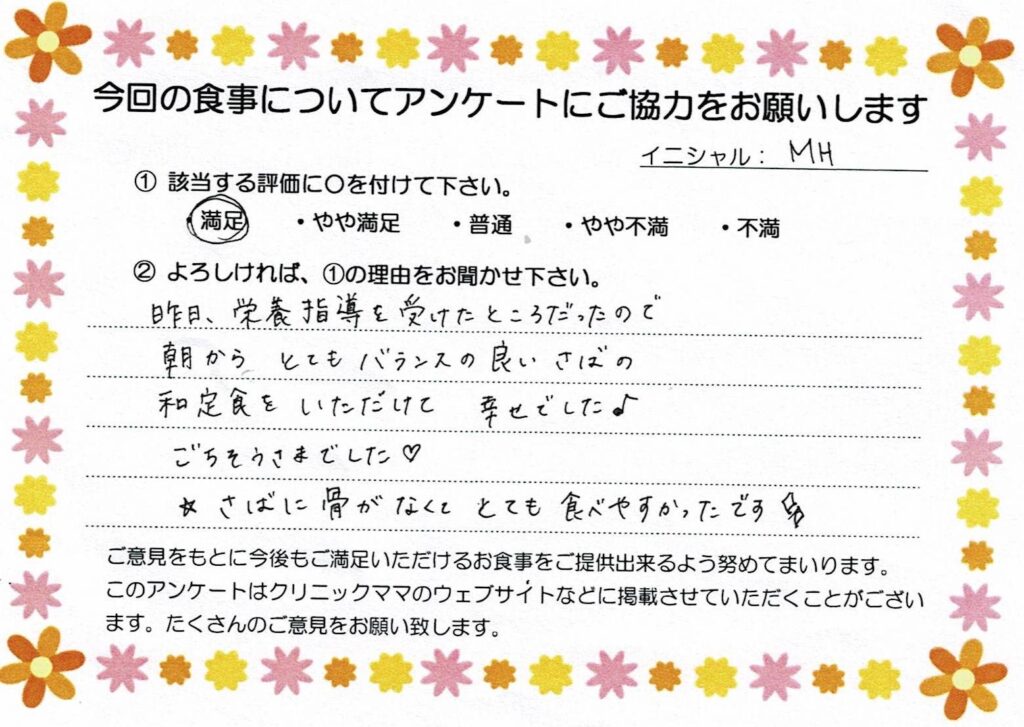 今回の食事についてアンケートにご協力をお願いします
イニシャル： MH
① 該当する評価に〇を付けて下さい。
・満足 ・やや満足 ・普通 ・やや不満 ・不満
② よろしければ、①の理由をお聞かせ下さい。
昨日、栄養指導を受けたところだったので
朝から とてもバランスの良い さばの
和定食を いただけて 幸せでした♪
ごちそうさまでした♡
☆ さばに骨がなくて とても 食べやすかったです
ご意見をもとに今後もご満足いただけるお食事をご提供出来るよう努めてまいります。
このアンケートはクリニックママのウェブサイトなどに掲載させていただくことがござい
ます。たくさんのご意見をお願い致します。